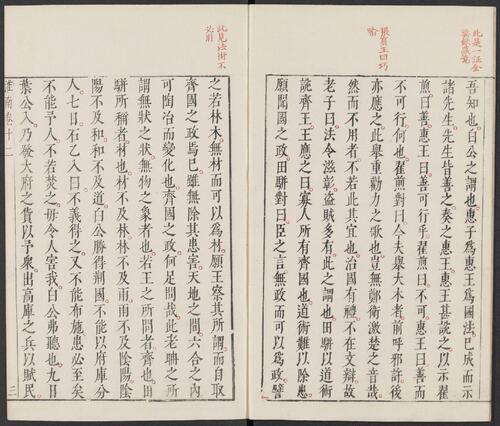 此是一証全
梁餘歲寬
吾知也白公之謂也惠子爲惠王爲國法已成而示
諸先生先生皆善之奏之惠王惠王甚說之以示翟
煎曰善惠王曰善可行乎翟煎曰不可惠王曰善而
不可行何也翟煎對曰今夫舉大木者前呼邪許後
亦應之此舉重勸力之歌也豈無鄭衛激楚之音哉
然而不用者不若此其宜也治國有禮不在文辯故
老子曰法令滋彰盜賊多有此之謂也田駢以道術
說齊王王應之曰寡人所有齊國也道術難以除患
願聞國之政田駢對曰臣之言無政而可以爲政
此見法術不
必用
之若林木無材而可以爲材願王察其所謂而自取
齊國之政焉已雖無除其患害天地之間六合之內
可陶冶而變化也齊國之政何足問哉此老聃之所
謂無狀之狀無物之象者也若王之所問者齊也田
駢所稱者材也材不及林林不及雨雨不及陰陽陰
陽不及和和不及道白公勝得荊國不能以府庫分
人七日石乙入曰不義得之又不能布施患必至矣
不能予人不若焚之毋令人害我白公弗聽也九日
葉公入乃發大府之貨以予衆出高庫之兵以賦民
淮南卷十二
三